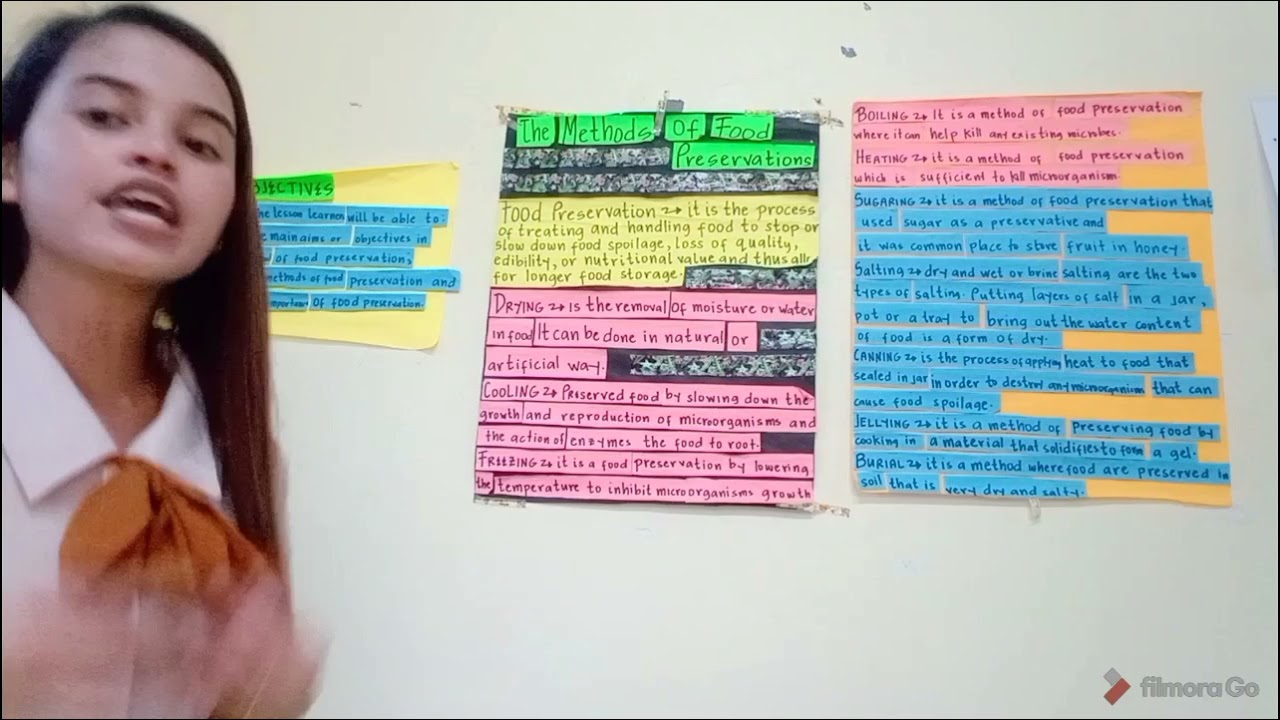 OBJECTIVES
the lesson learners will be able to:
main aims or objectives in
of food preservation;
methods of food preservation and
important of food preservation.
The Methods Of Food
Preservations
Food Preservation → it is the process
of treating and handling food to stop or
slow down food spoilage, loss of quality,
edibility, or nutritional value and thus allo
for longer food storage.
DRYING → is the removal of moisture or water
in food It can be done in natural or
artificial way.
COOLING → Preserved food by slowing down the
growth and reproduction of microorganisms and
the action of enzymes the food to root.
FREEZING → it is a food preservation by lowering
the temperature to inhibit microorganisms growth
BOILING → It is a method of food preservation
where it can help kill any existing microbes.
HEATING → it is a method of food preservation
which is sufficient to kill microorganism.
SUGARING → it is a method of food preservation that
used sugar as a preservative and
it was common place to store fruit in honey.
Salting → dry and wet or brine salting are the two
types of salting. Putting layers of salt in a jar,
pot or a tray to bring out the water content
of food is a form of dry.
CANNING → is the process of applying heat to food that
sealed in jar in order to destroy any microorganism that can
cause food spoilage.
JELLYING → it is a method of preserving food by
cooking in a material that solidifies to form a gel.
BURIAL → it is a method where food are preserved in
soil that is very dry and salty.
filmora Go